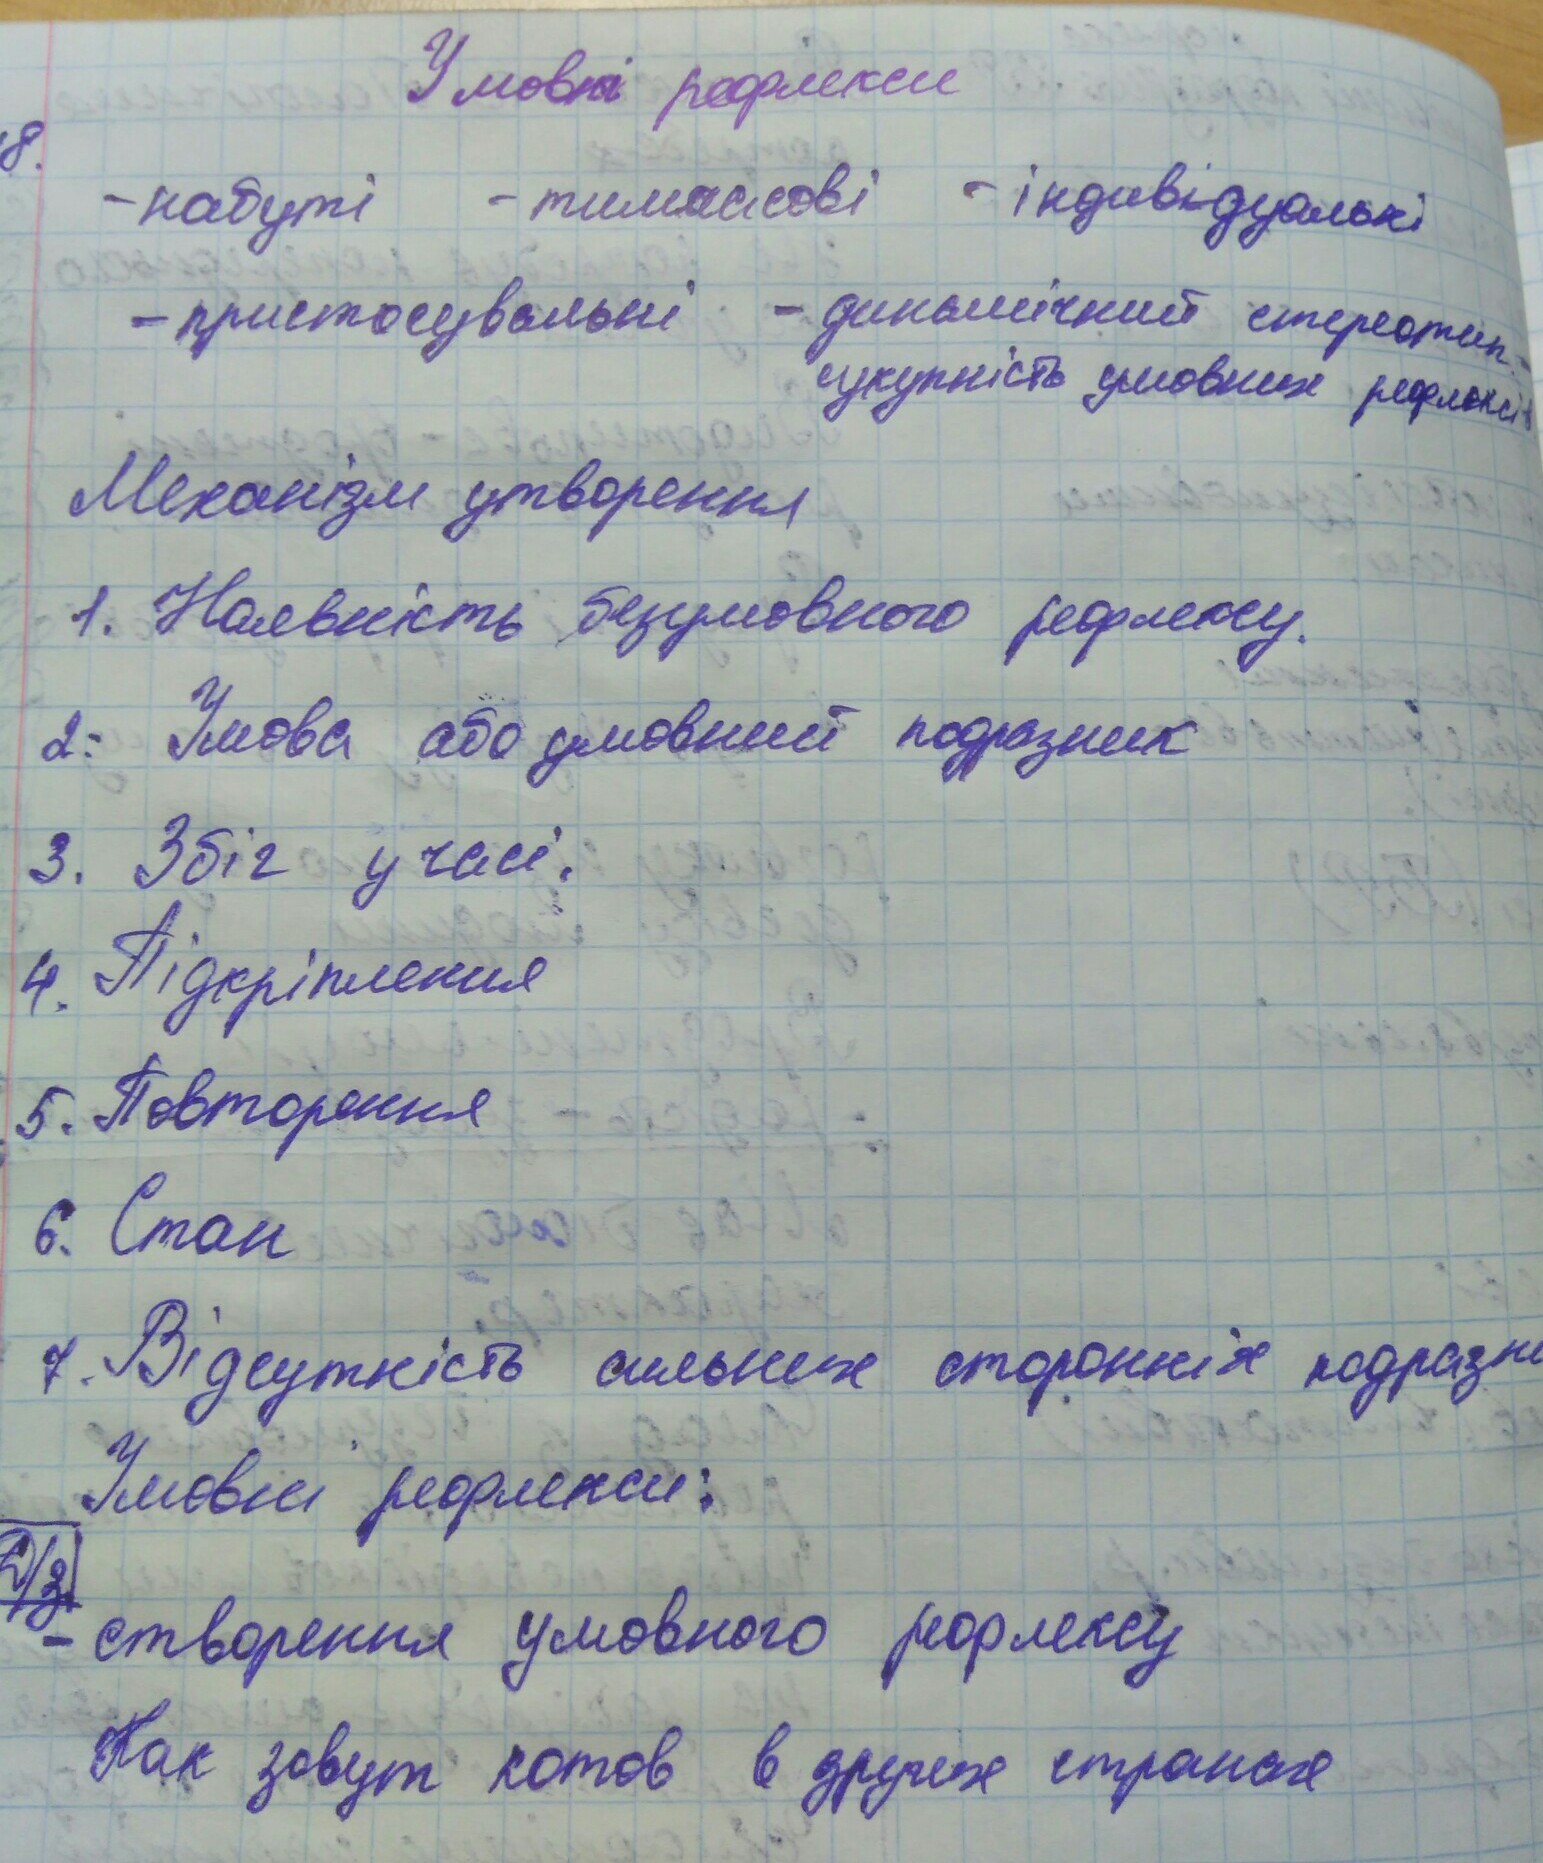 Умовні рефлекси
8.
- набуті - тимчасові - індивідуальні
- пристосувальні - динамічний стереотип -
сукупність умовних рефлексів
Механізм утворення
1. Наявність безумовного рефлексу.
2. Умова або умовний подразник
3. Збіг у часі.
4. Підкріплення
5. Повторення
6. Стан
7. Відсутність сильних сторонніх подразни
Умовні рефлекси:
Д/з
- створення умовного рефлексу
Как зовут котов в других странах